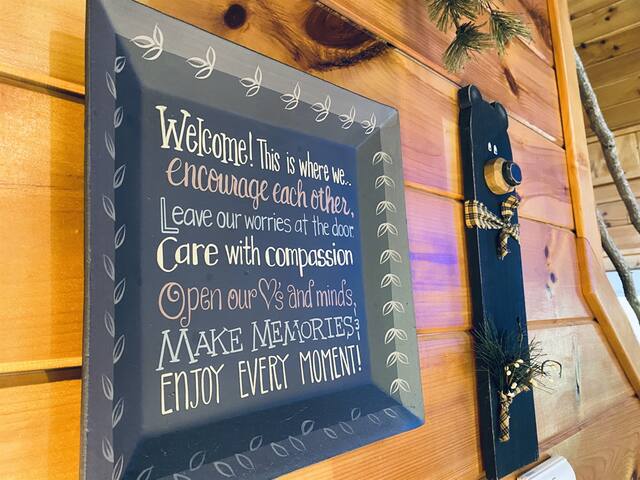 Welcome! This is where we..
encourage each other,
Leave our worries at the door.
Care with compassion
Open our ♡s and minds,
MAKE MEMORIES &
ENJOY EVERY MOMENT!